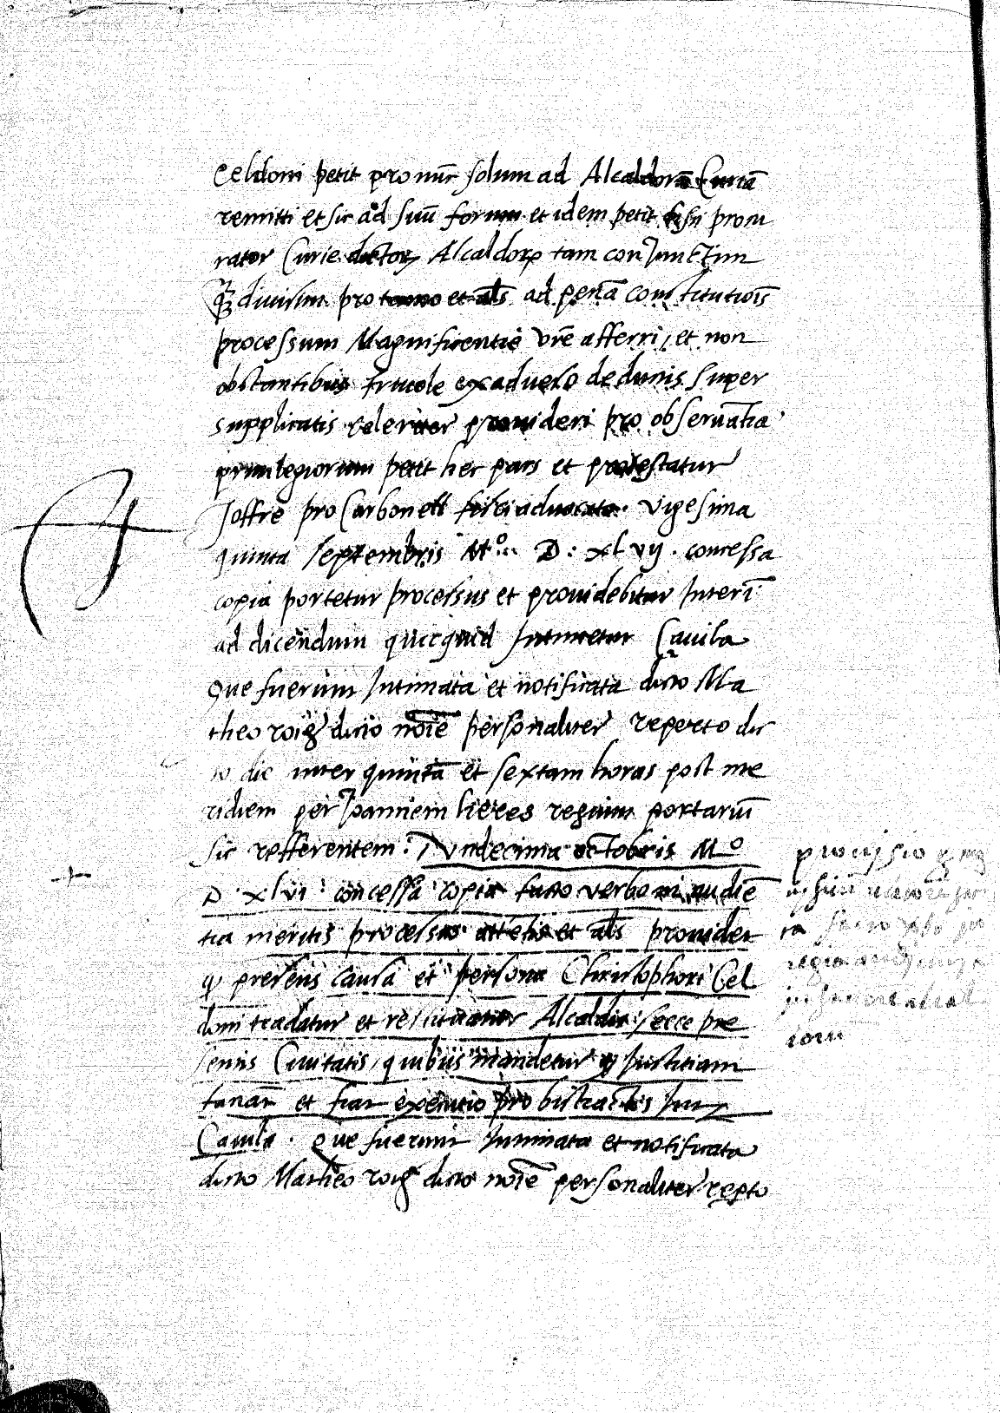 Celdoni petit pro nunc solum ad Alcaldorū Curiā
remitti et sic ad suū forum et idem petit procu
rator Curie dictor Alcaldor tam conJunctim
q̄ diuisim pro et als ad penā constitutiōis
processum Magnificentie vr̄e afferri, et non
obstantibus friuole ex aduerso deductis super
supplicatis celeriter prouideri pro obseruātia
priuilegiorum petit hec pars et protestatur
Joffre pro Carbonell fisci aduocato. vigesima
quinta septembris Mº D: xlvij. concessa
copia portetur processus et prouidebitur Interī
ad dicendum quicquid Intimetur Cauila
Que fuerunt Intimata et notificata dicto Ma
theo roig dicto noīe personaliter reperto dic
to die inter quintā et sextam horas post me
ridiem per Joannem lieres regium portariū
sic refferentem: Undecima octobris Mº
D xlvi concessa copia facto verbo in audiē
tia meritis processus attētis et als prouidet
q presens causa et persona Christophori Cel
doni tradatur et restituatur Alcaldis secce pre
sentis Ciuitatis, quibus mandetur q Justitiam
fanāt et fiat executio pro bistractis Jur
Cauila. Que fuerunt Intimata et notificata
dicto Matheo roig dicto noīe personaliter repto
prouisio q
ra
regia